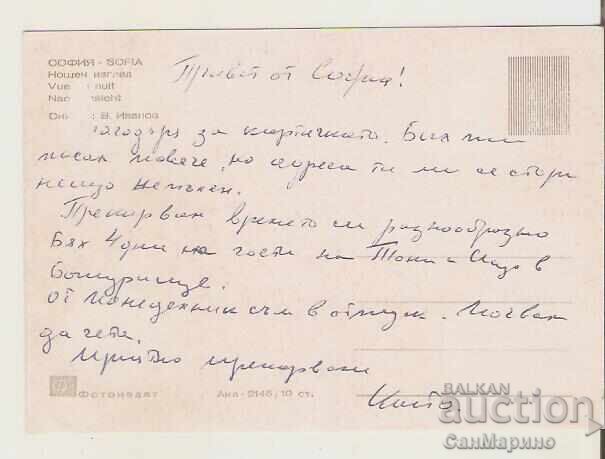 СОФИЯ - SOFIA
Нощен изглед
Vue nuit
Nac nsicht
Сни : В. Иванов
Привет от София!
Благодаря за картичката. Бих ти
писал повече, но адреса ти ми се стори
нещо непълен.
Прекарвам времето си разнообразно
Бях 4 дни на гости на Тони и в
Божурище.
От понеделник съм в отпуск. Почвам
да чета.
Приятно прекарване
Фотоиздат
Ана - 2146, 10 ст.
BALKAN
auction
СанМарино